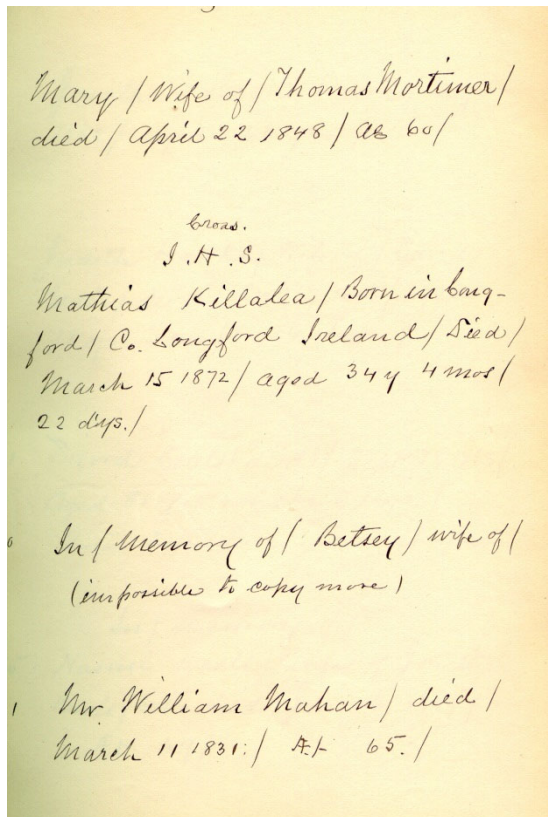 Mary / Wife of / Thomas Mortimer /
died / April 22 1848 / AE 60 /
Cross.
I.H.S.
Mathias Killalea / Born in Long-
ford / Co. Longford Ireland / Died /
March 15 1872 / aged 34 y 4 mos /
22 dys. /
In / Memory of / Betsey / wife of /
(impossible to copy more)
Mr William Mahan / died /
March 11 1831: / AE 65. /